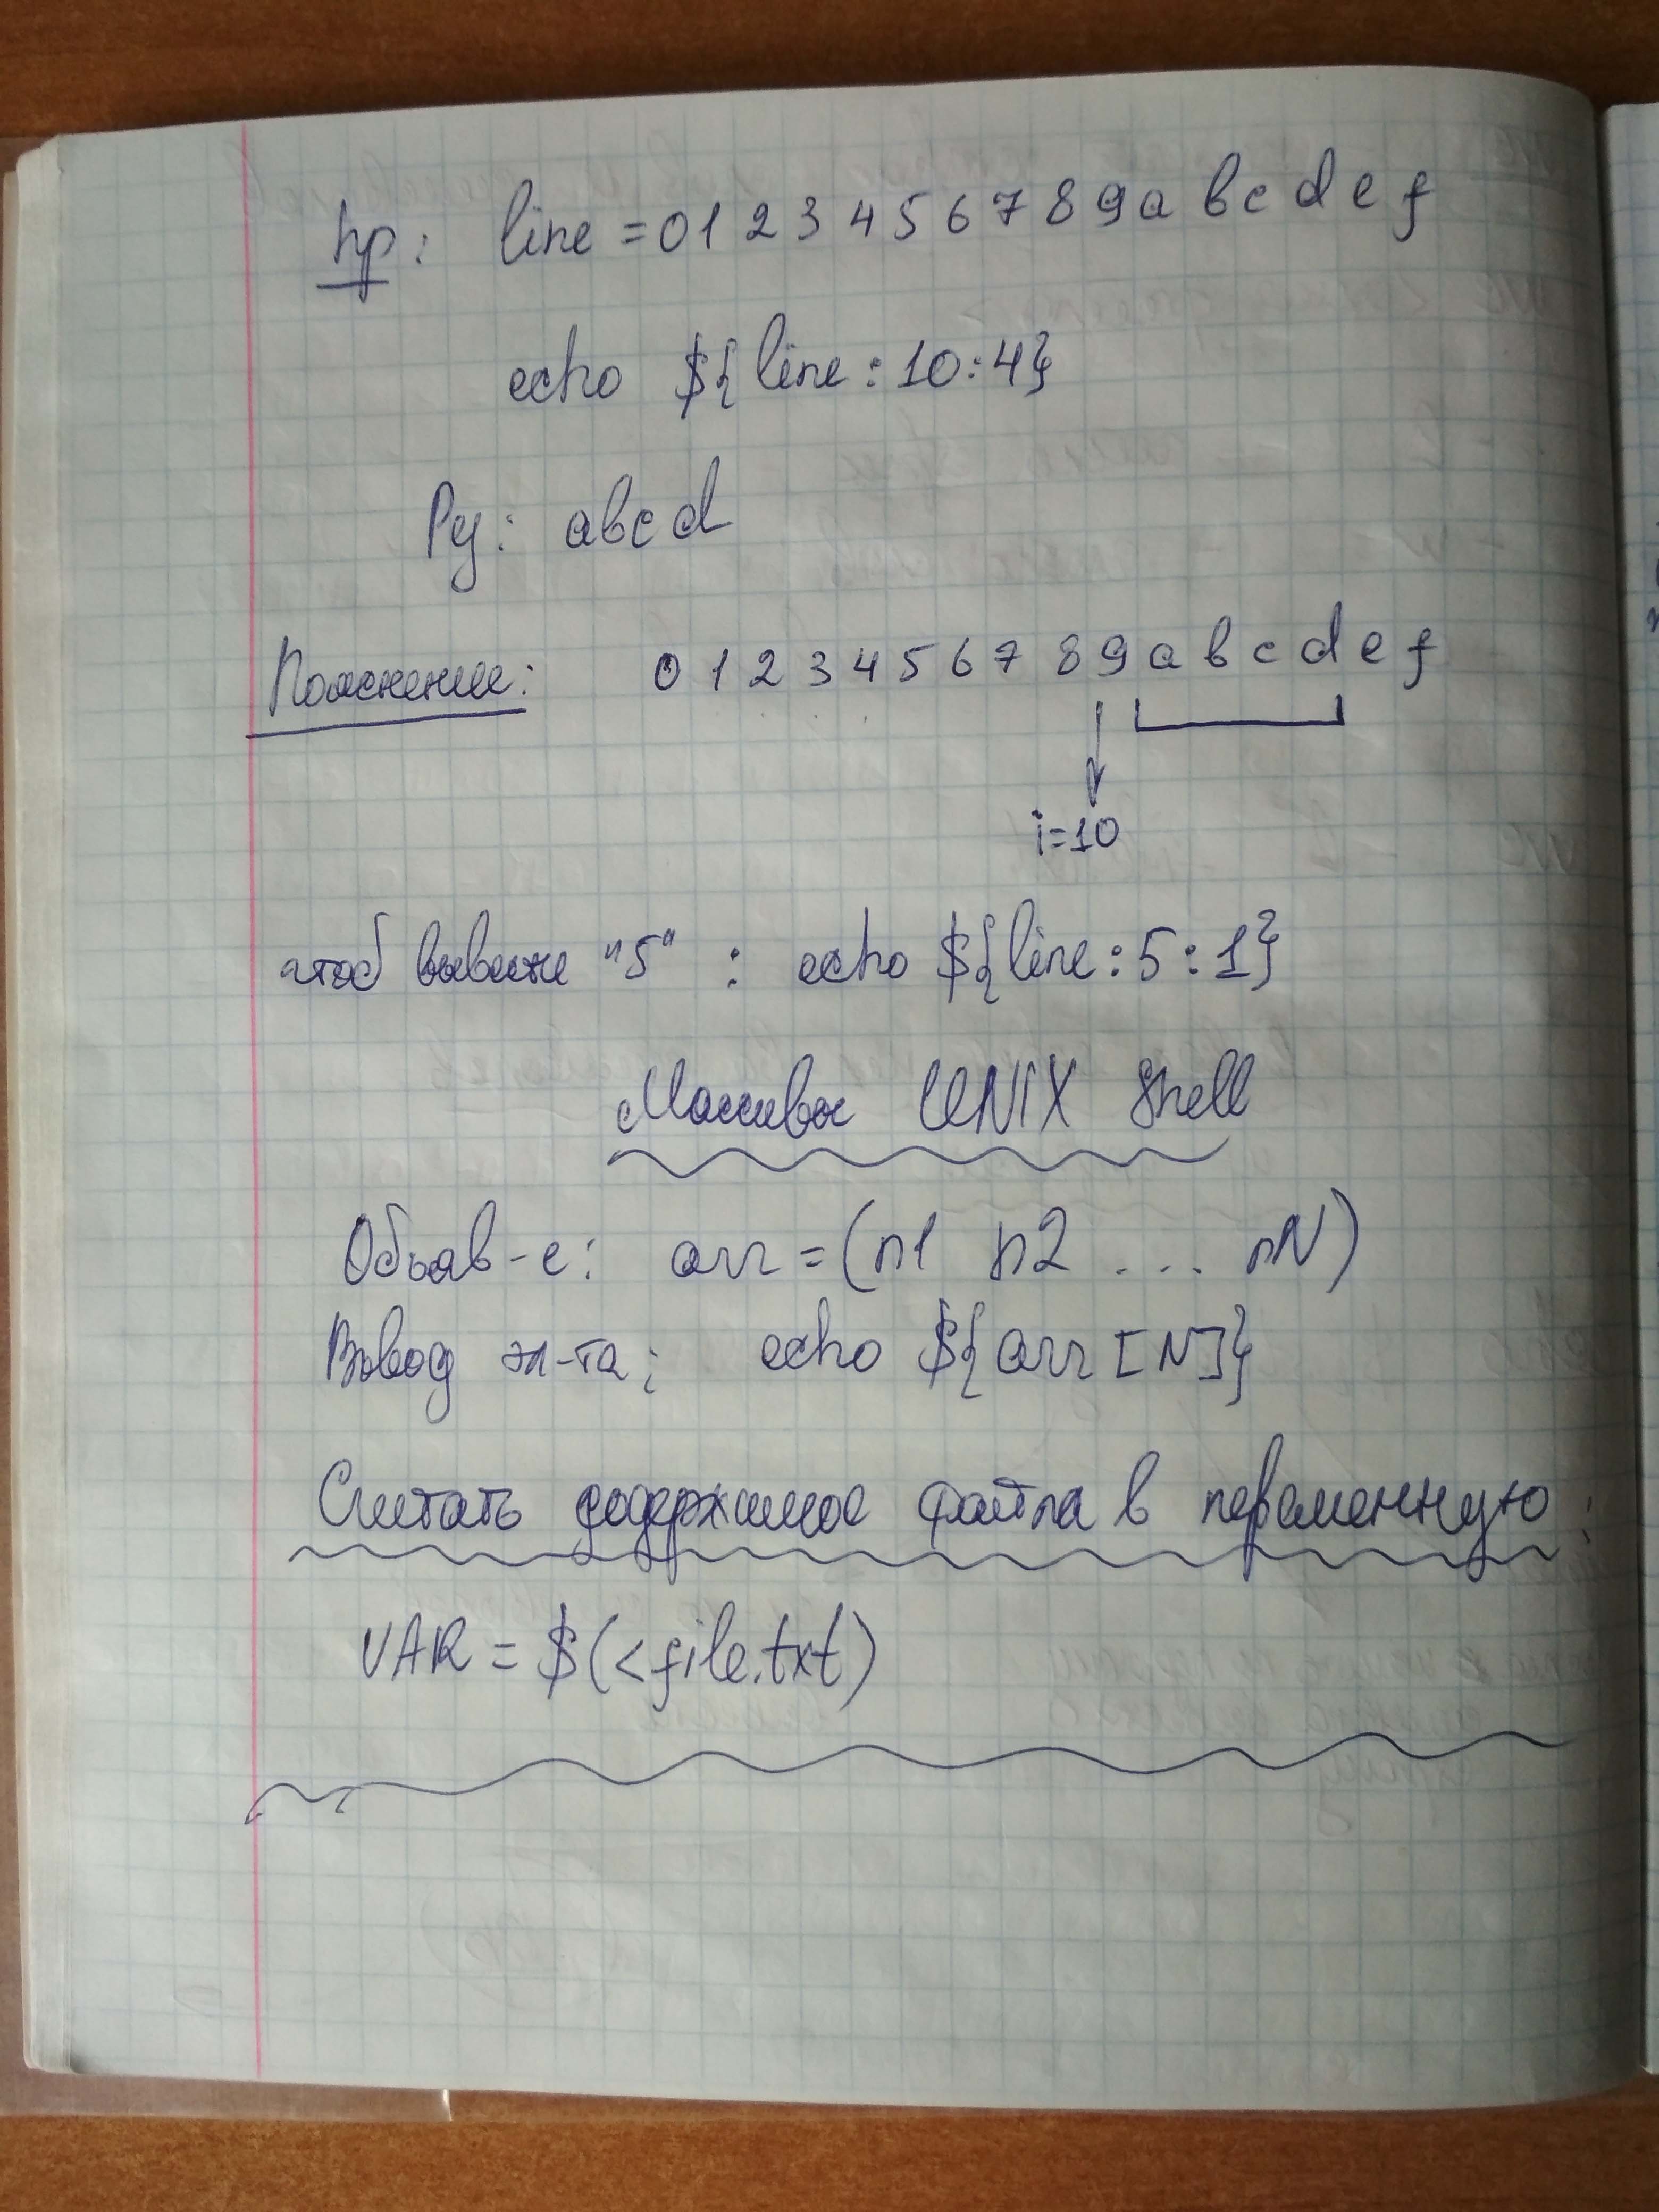 Пр: line = 0 1 2 3 4 5 6 7 8 9 a b c d e f
echo ${line:10:4}
Ру: abcd
Пояснение: 0 1 2 3 4 5 6 7 8 9 a b c d e f
i=10
чтоб вывести "5" : echo ${line:5:1}
Массивы UNIX Shell
Объяв-е: arr = (n1 n2 ... nN)
Вывод эл-та: echo ${arr[N]}
Считать содержимое файла в переменную:
VAR = $(<file.txt)